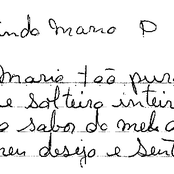 inda Maria O
Maria tão pur
e solteira intei
o sabor do melh
meu desejo e sent